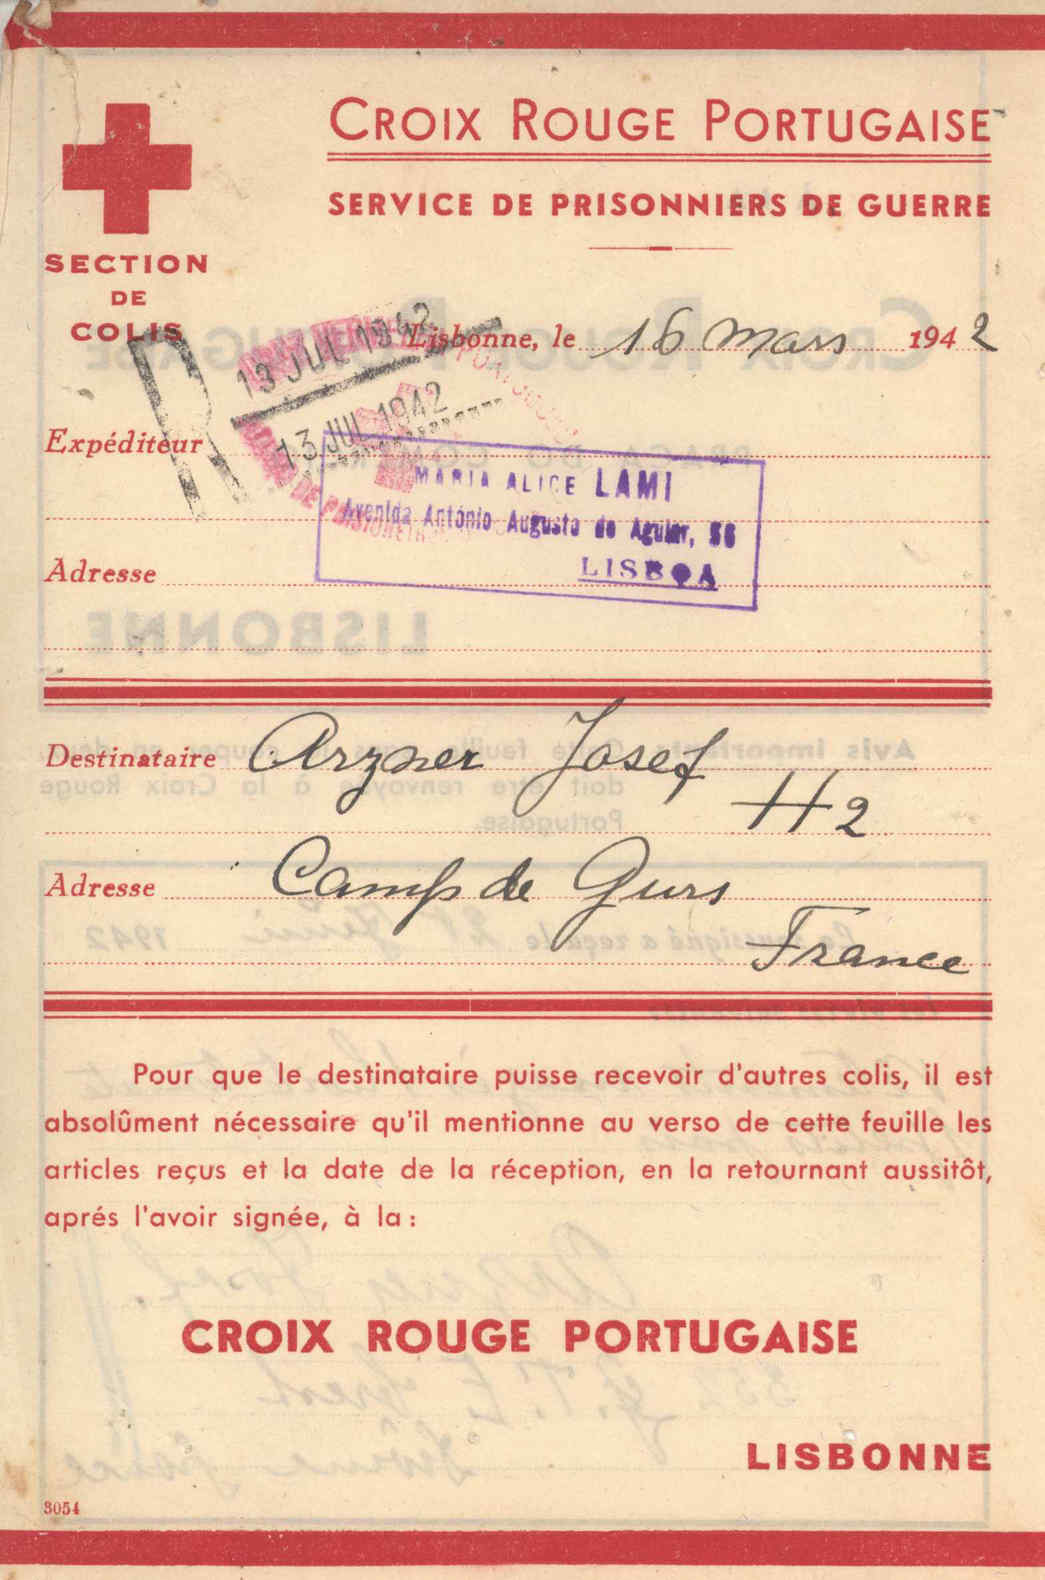 CROIX ROUGE PORTUGAISE
SERVICE DE PRISONNIERS DE GUERRE
SECTION
DE
COLIS
Lisbonne, le 16 Mars 1942
R
13 JUL 1942
13 JUL 1942
Expéditeur
MARIA ALICE LAMI
Avenida António Augusto de Aguiar, 56
LISBOA
Adresse
Destinataire Arzner Josef
H2
Adresse Camp de Gurs
France
Pour que le destinataire puisse recevoir d'autres colis, il est
absolûment nécessaire qu'il mentionne au verso de cette feuille les
articles reçus et la date de la réception, en la retournant aussitôt,
aprés l'avoir signée, à la:
CROIX ROUGE PORTUGAISE
LISBONNE
3054